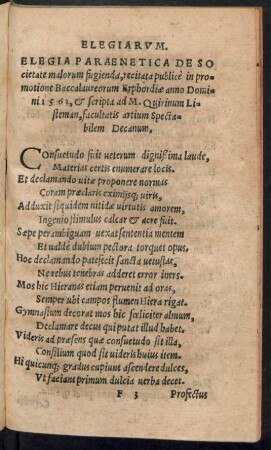 ELEGIARVM.
ELEGIA PARAENETICA DE SO
cietate malorum fugienda, recitata publicè in pro=
motione Baccalaureorum Erphordiæ anno Domi=
ni 1562, & scripta ad M. Quirinum Li=
steman, facultatis artium Specta=
bilem Decanum.
Consuetudo fuit ueterum dignissima laude,
Materias certis enumerare locis.
Et declamando uitæ proponere normas
Coram præclaris eximijsq; uiris,
Adduxit siquidem nitidæ uirtutis amorem,
Ingenio stimulus calcar & acre fuit.
Sæpe perambiguam uexat sententia mentem
Et ualdè dubium pectora torquet opus.
Hoc declamando patefecit sancta uetustas,
Ne rebus tenebras adderet error iners.
Mos hic Hieranas etiam peruenit ad oras,
Semper ubi campos flumen Hiera rigat.
Gymnasium decorat mos hic fœliciter almum,
Declamare decus qui putat illud habet.
Videris ad præsens quæ consuetudo sit illa,
Consilium quod sit uideris huius item.
Hi quicunq; gradus cupiunt ascendere dulces,
Vt faciant primum dulcia uerba decet.
F 3 Profectus